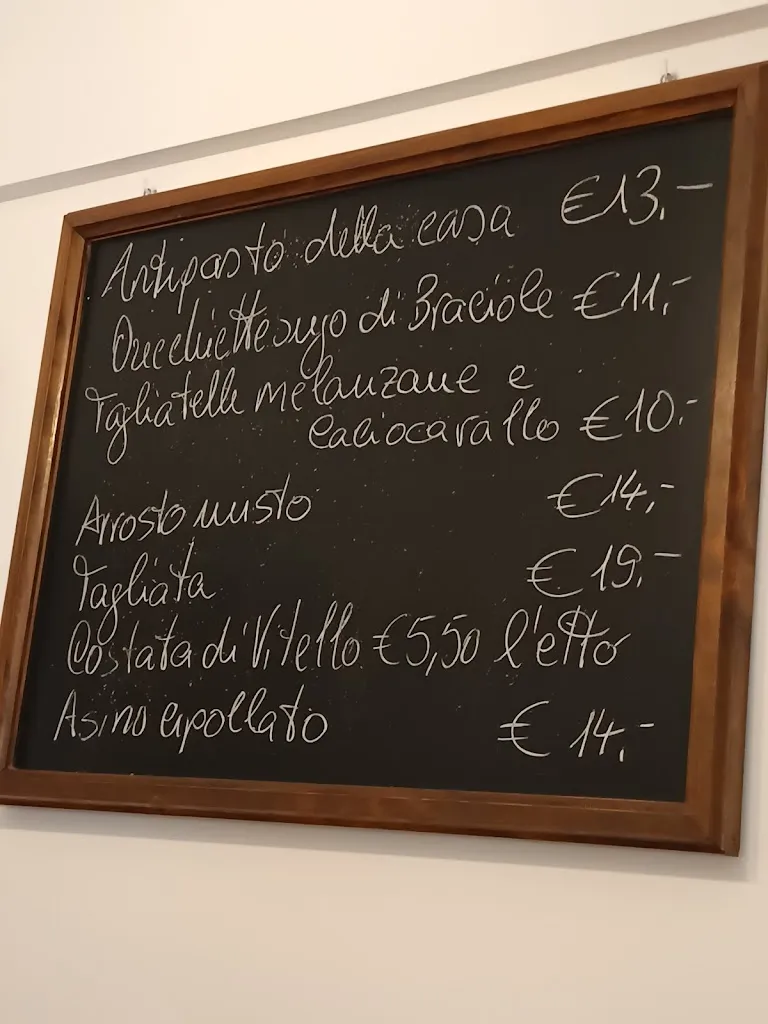 Antipasto della casa €13.-
Orecchiette sugo di Braciole €11,-
Tagliatelle melanzane e
Caciocavallo €10.-
Arrosto misto €14,-
Tagliata €19.-
Costata di Vitello €5,50 l'etto
Asino cipollato € 14.-